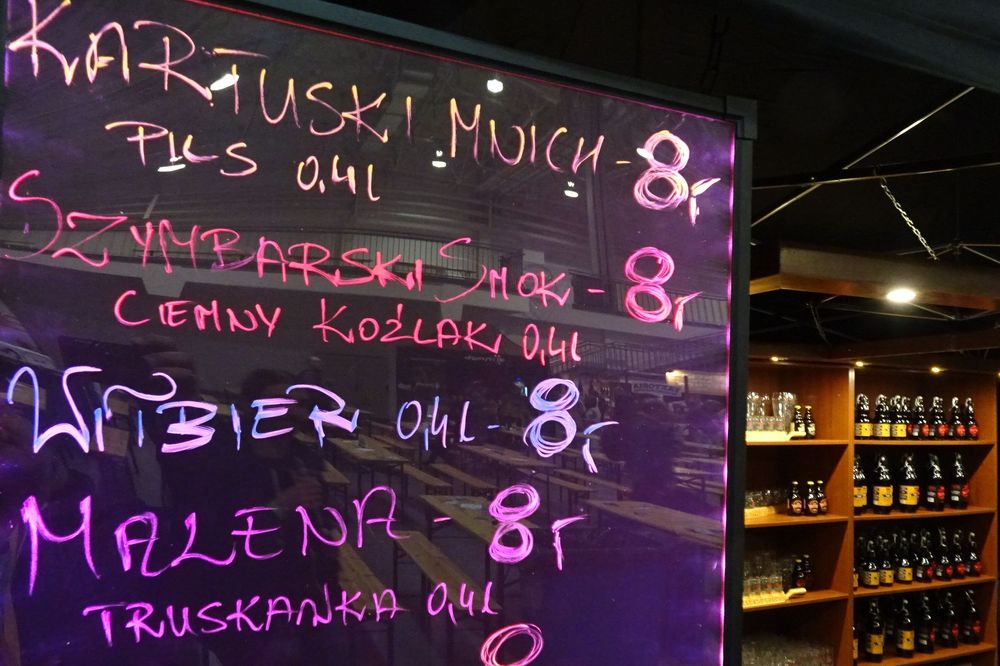 KARTUSKI MNICH - 8,-
PILS 0,4l
SZYMBARSKI SMOK - 8,-
CIEMNY KOŹLAK 0,4l
WITBIER 0,4l - 8,-
MALENA - 8,-
TRUSKAWKA 0,4l